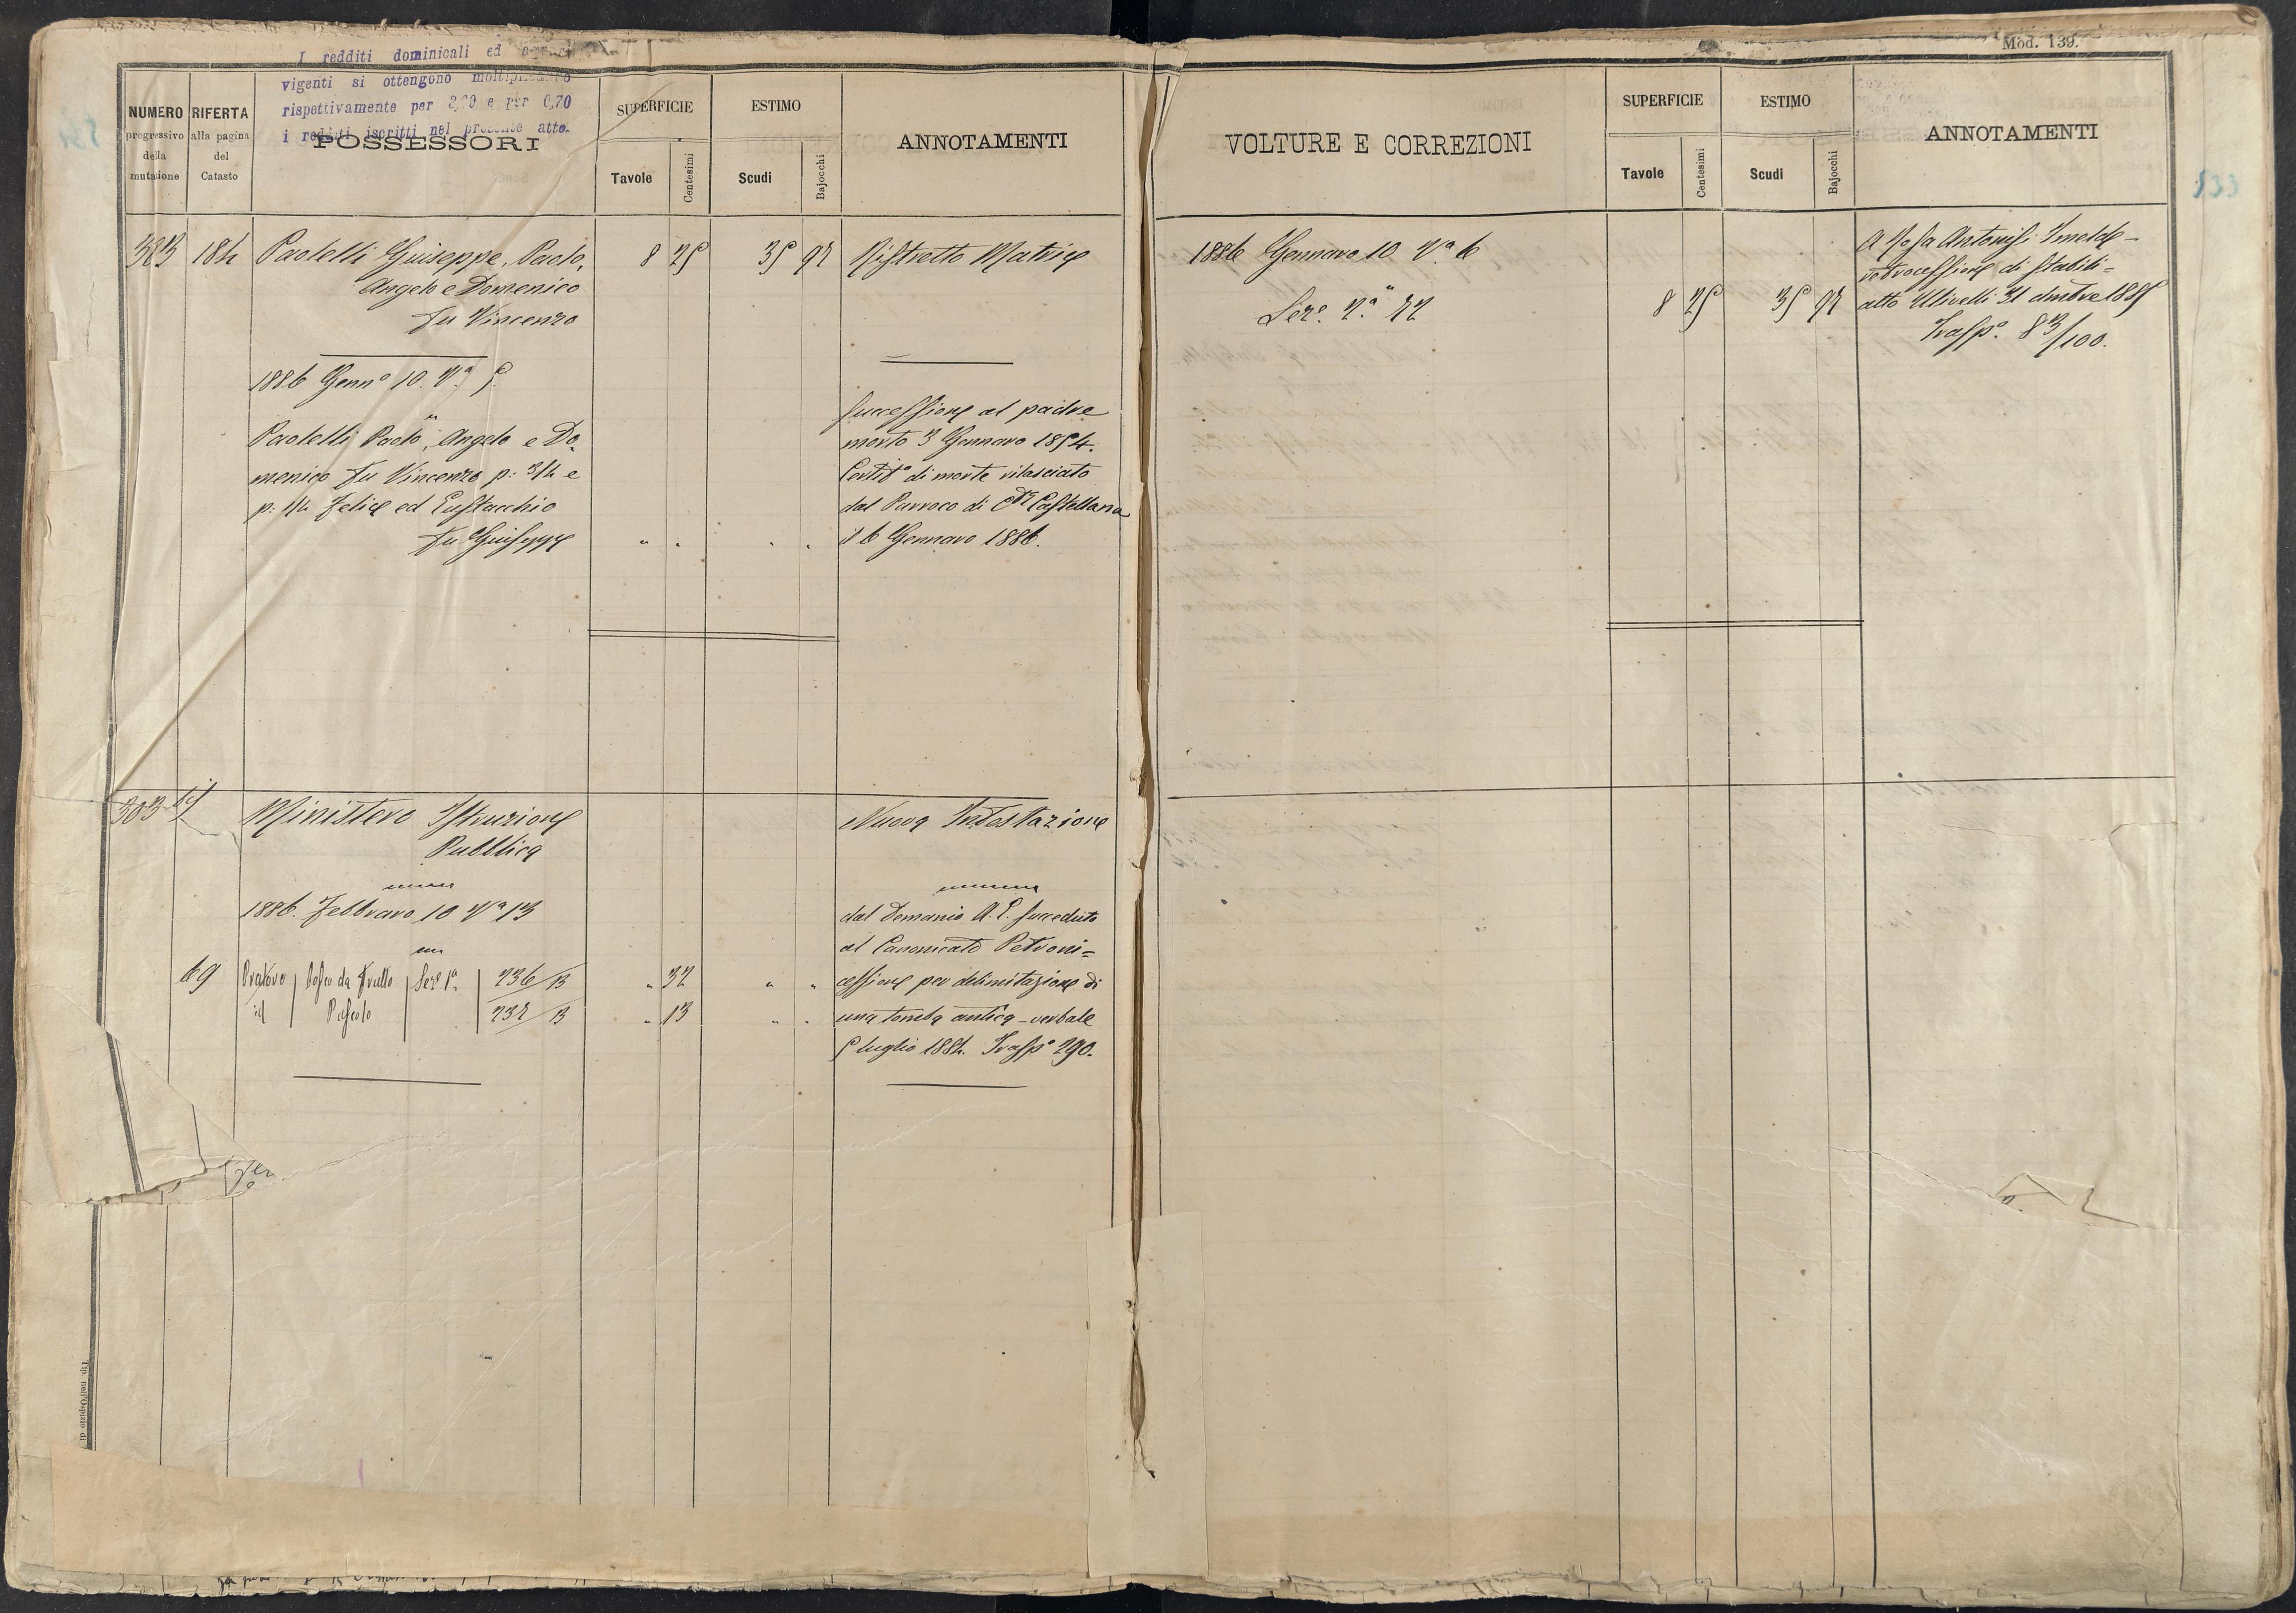 I redditi dominicali ed
vigenti si ottengono
rispettivamente per e per 0,70
i redditi iscritti nel presente atto.
Mod. 139.
NUMERO
progressivo
della
mutazione
RIFERTA
alla pagina
del
Catasto
POSSESSORI
SUPERFICIE
Tavole
Centesimi
ESTIMO
Scudi
Bajocchi
ANNOTAMENTI
VOLTURE E CORREZIONI
SUPERFICIE
Tavole
Centesimi
ESTIMO
Scudi
Bajocchi
ANNOTAMENTI
533
Paolelli Giuseppe, Paolo,
Angelo e Domenico
fu Vincenzo
8 25
35 92
Ristretto Matrice
1886 Genn.o 10. V.a 5
Paolelli Paolo, Angelo e Do
menico fu Vincenzo p: 3/4 e
p: 1/4 Felice ed Eustacchio
fu Giuseppe
Successione al padre
morto 3 Gennaro 1854.
Certif.o di morte rilasciato
dal Parroco di C.ta Castellana
il 6 Gennaro 1886.
1886 Gennaro 10 V.a 6
Sez.e 2.a 22
8 25
35 92
A Rosa Antonisi Imelde -
retrocessione di stabili =
atto Ulivelli 31 dmbre 1885
Trasp.o 83/100.
383 bis
Ministero Istruzione
Pubblica
Nuova Intestazione
1886. Febbraro 10 V.a 13
dal Demanio A. E. succeduto
al Canonicato Petroni =
69
Sez.e 1.a
236/B
" 32
cessione per delimitazione di
id
Pascolo
237/B
" 13
una tomba antica - verbale
5 luglio 1884. Trasp.o 290.
Tip. nell'Ospizio di